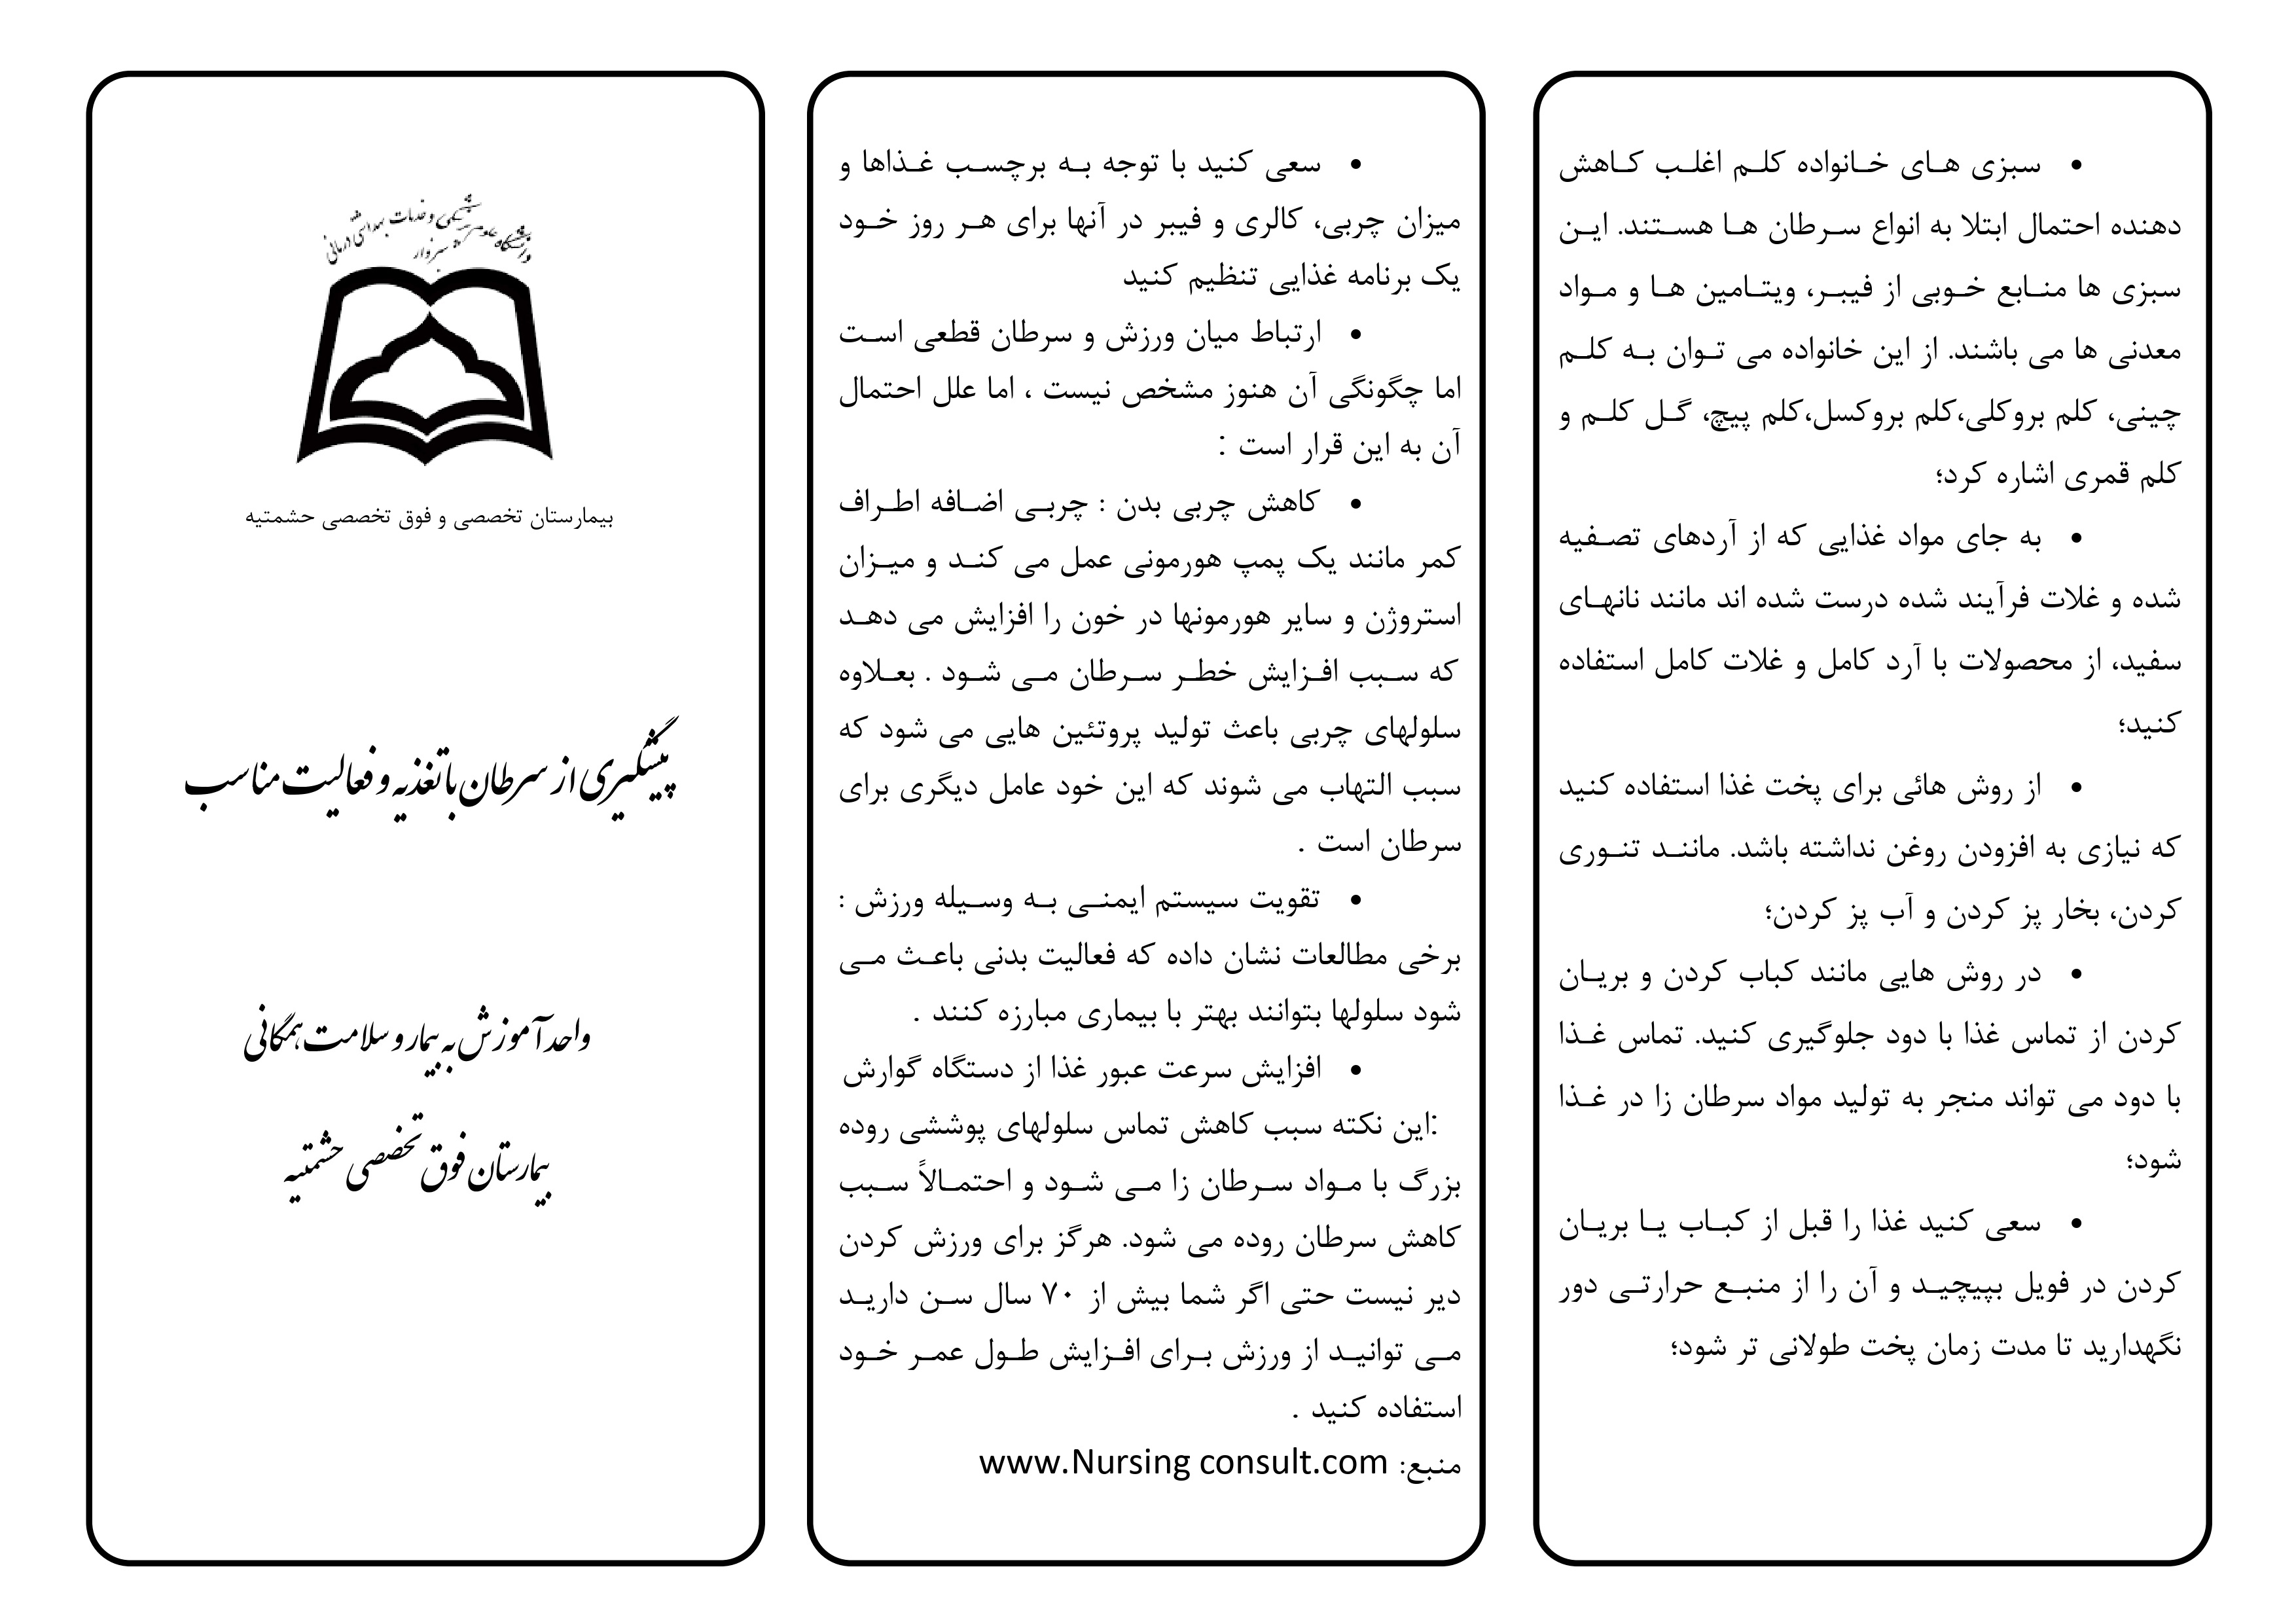 سبزی های خانواده کلم اغلب کاهش
دهنده احتمال ابتلا به انواع سرطان ها هستند. این
سبزی ها منابع خوبی از فیبر، ویتامین ها و مواد
معدنی ها می باشند. از این خانواده می توان به کلم
چینی، کلم بروکلی،کلم بروکسل،کلم پیچ، گل کلم و
کلم قمری اشاره کرد؛
• به جای مواد غذایی که از آردهای تصفیه
شده و غلات فرآیند شده درست شده اند مانند نانهای
سفید، از محصولات با آرد کامل و غلات کامل استفاده
کنید؛
• از روش هائی برای پخت غذا استفاده کنید
که نیازی به افزودن روغن نداشته باشد. مانند تنوری
کردن، بخار پز کردن و آب پز کردن؛
• در روش هایی مانند کباب کردن و بریان
کردن از تماس غذا با دود جلوگیری کنید. تماس غذا
با دود می تواند منجر به تولید مواد سرطان زا در غذا
شود؛
• سعی کنید غذا را قبل از کباب یا بریان
کردن در فویل بپیچید و آن را از منبع حرارتی دور
نگهدارید تا مدت زمان پخت طولانی تر شود؛
• سعی کنید با توجه به برچسب غذاها و
میزان چربی، کالری و فیبر در آنها برای هر روز خود
یک برنامه غذایی تنظیم کنید
• ارتباط میان ورزش و سرطان قطعی است
اما چگونگی آن هنوز مشخص نیست ، اما علل احتمال
آن به این قرار است :
• کاهش چربی بدن : چربی اضافه اطراف
کمر مانند یک پمپ هورمونی عمل می کند و میزان
استروژن و سایر هورمونها در خون را افزایش می دهد
که سبب افزایش خطر سرطان می شود . بعلاوه
سلولهای چربی باعث تولید پروتئین هایی می شود که
سبب التهاب می شوند که این خود عامل دیگری برای
سرطان است .
• تقویت سیستم ایمنی به وسیله ورزش :
برخی مطالعات نشان داده که فعالیت بدنی باعث می
شود سلولها بتوانند بهتر با بیماری مبارزه کنند .
• افزایش سرعت عبور غذا از دستگاه گوارش
:این نکته سبب کاهش تماس سلولهای پوششی روده
بزرگ با مواد سرطان زا می شود و احتمالاً سبب
کاهش سرطان روده می شود. هرگز برای ورزش کردن
دیر نیست حتی اگر شما بیش از ۷۰ سال سن دارید
می توانید از ورزش برای افزایش طول عمر خود
استفاده کنید .
منبع: www.Nursing consult.com
دانشگاه علوم پزشکی و خدمات بهداشتی درمانی
سبزوار
بیمارستان تخصصی و فوق تخصصی حشمتیه
پیشگیری از سرطان با تغذیه و فعالیت مناسب
واحد آموزش به بیمار و سلامت همگانی
بیمارستان فوق تخصصی حشمتیه